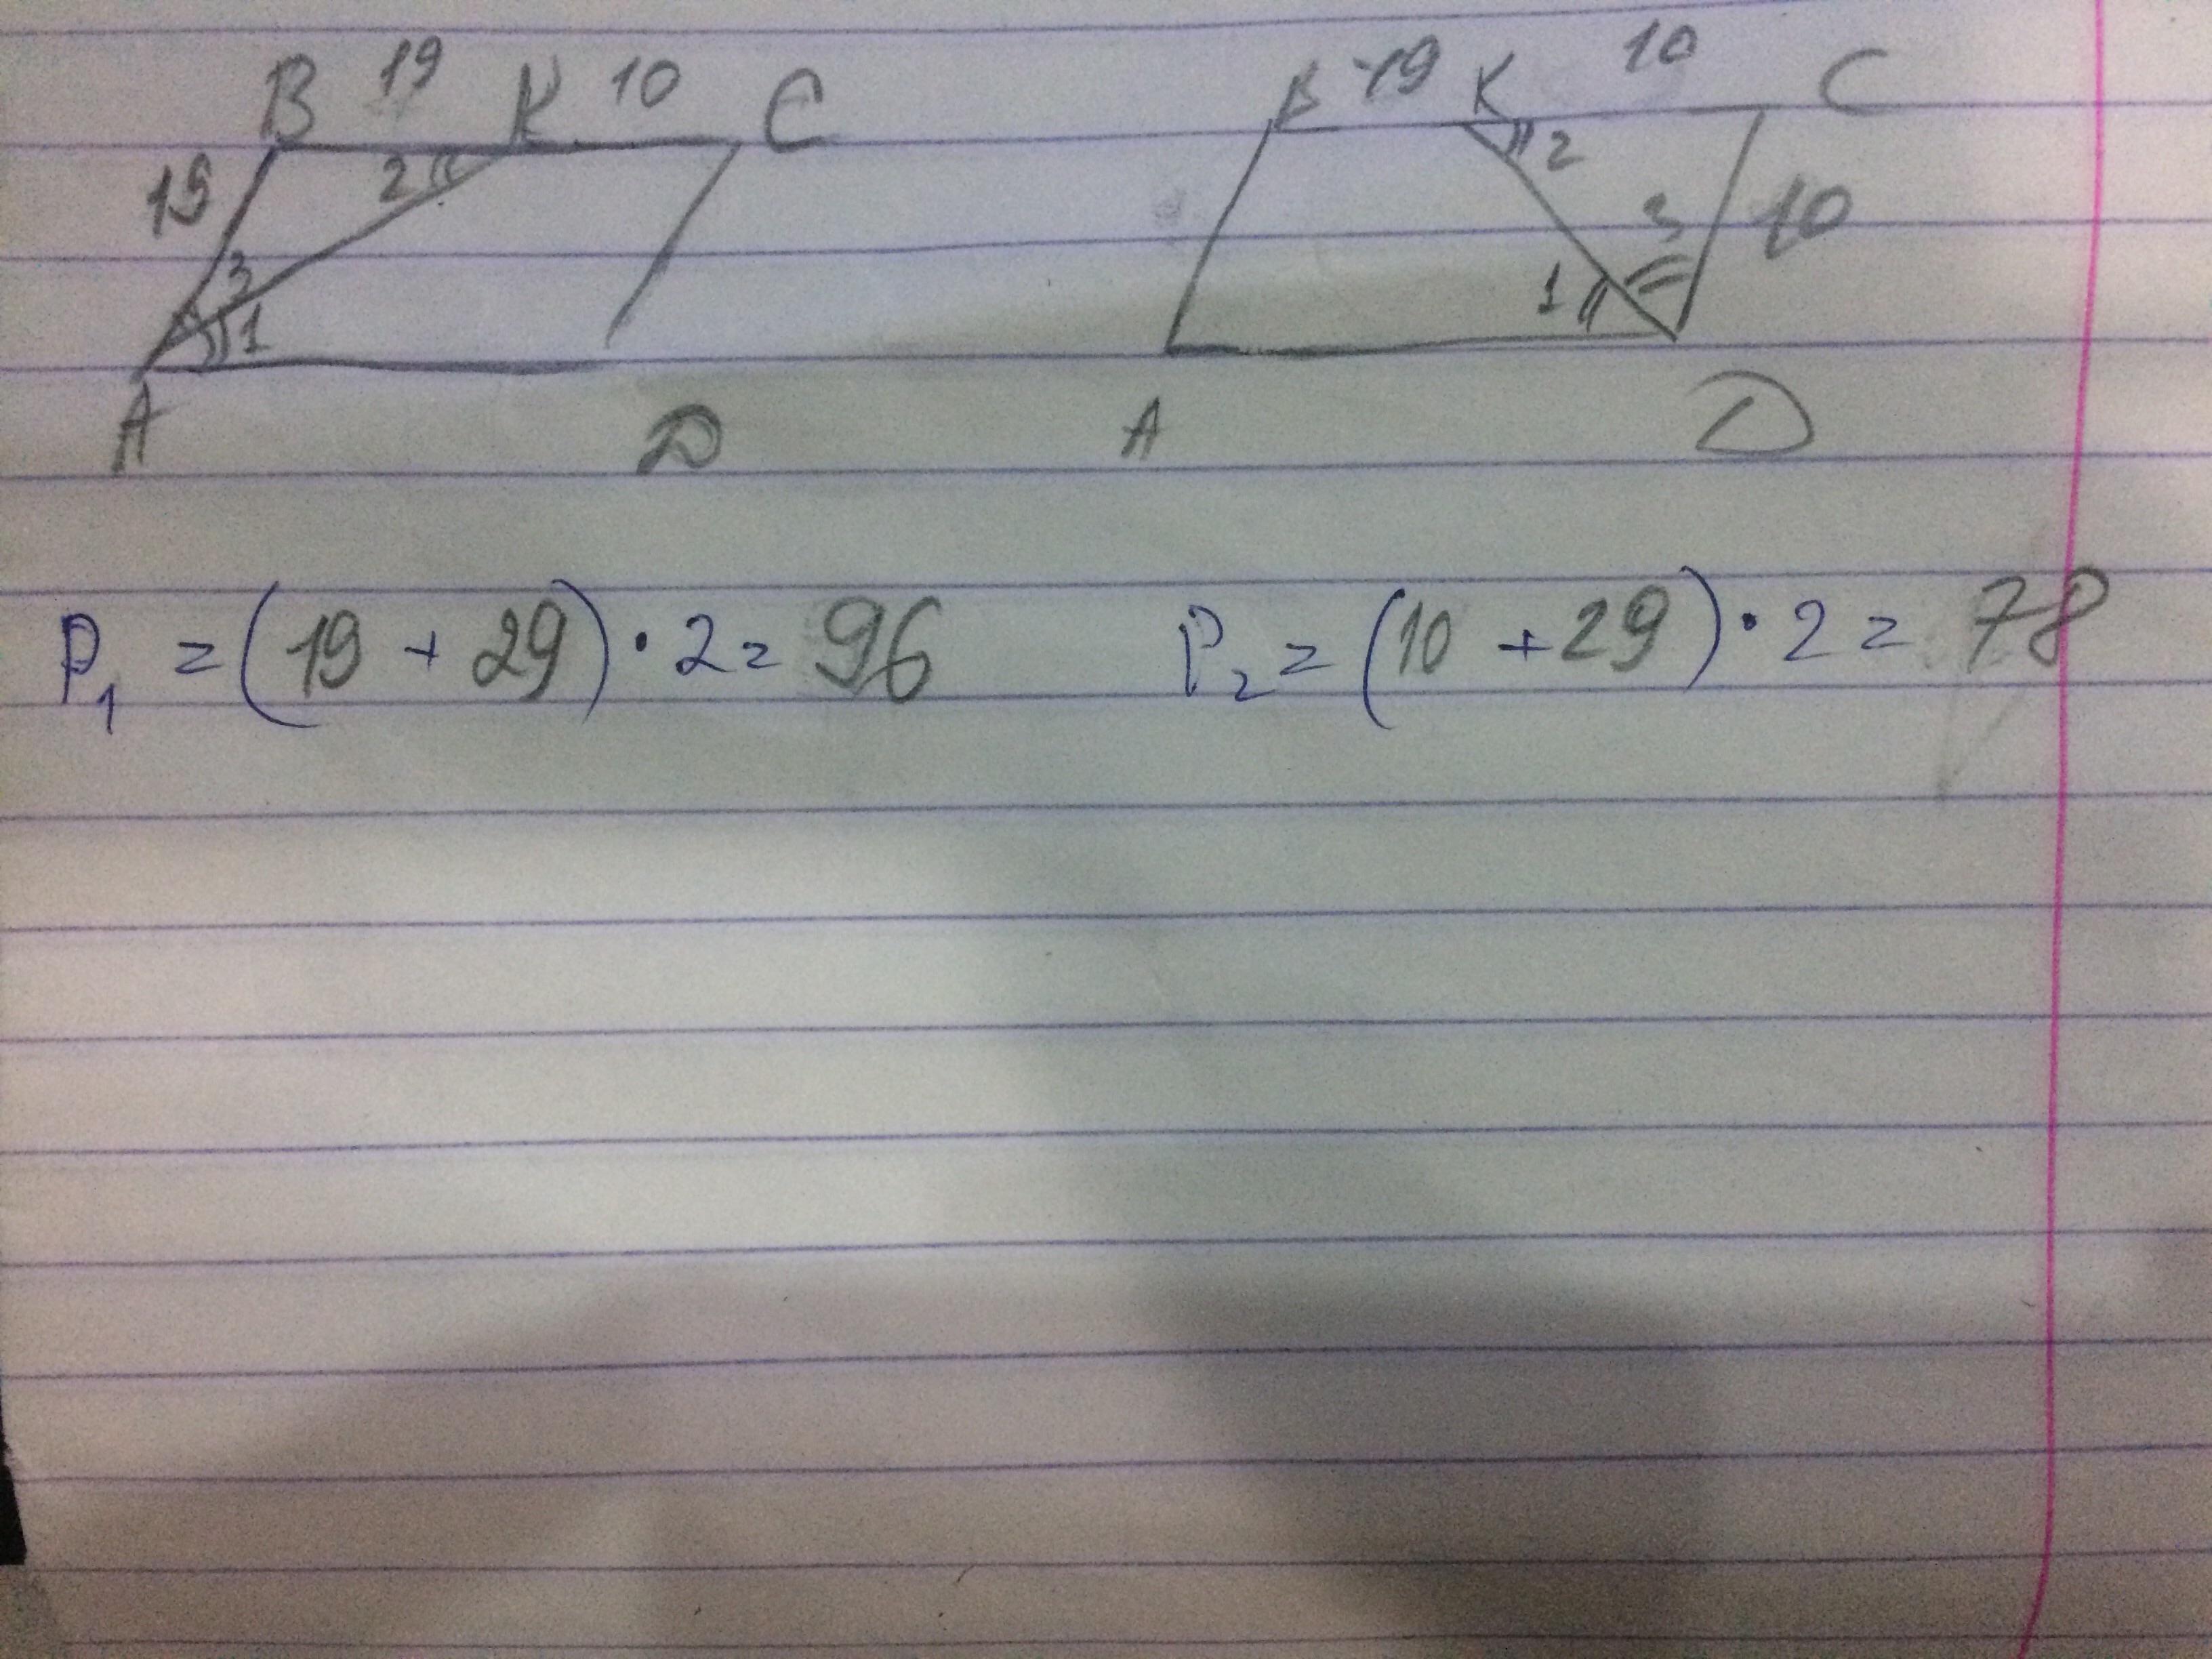 B 19 K 10 C
19 2
3
1
A D
B 19 K 10 C
2
3 10
1
A D
P₁ = (19 + 29) · 2 = 96
P₂ = (10 + 29) · 2 = 78